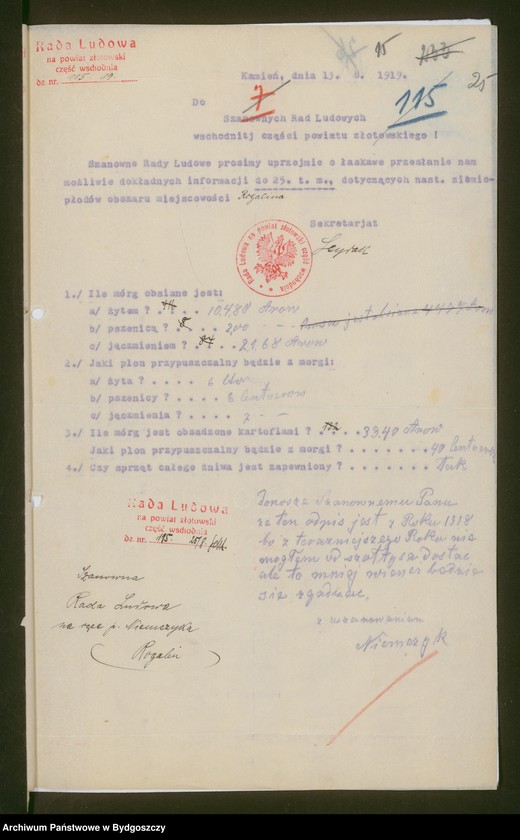 Rada Ludowa
na powiat złotowski
część wschodnia
dz. nr. 115 19.
15 233
25
Kamień, dnia 13. 8. 1919.
7
115
Do
Szanownych Rad Ludowych
wschodnitj części powiatu złotowskiego !
Szanowne Rady Ludowe prosimy uprzejmie o łaskawe przesłanie nam
możliwie dokładnych informacji do 25. t. m., dotyczących nast. ziemio-
płodów obszaru miejscowości Rogalina
Sekretarjat
Rada Ludowa na powiat złotowski część wschodnia
1./ Ile mórg obsiane jest:
a/ żytem ? . . . . 10,488 Arow
b/ pszenicą ? . . . . 200 - -
c/ jęczmieniem ? . . . . 21,68 Arow
2./ Jaki plon przypuszczalny będzie z morgi:
a/ żyta ? . . . . . 6
b/ pszenicy ? . . . . 8 Centnarow
c/ jęczmienia ? . . . . 7 - -
3./ Ile mórg jest obsadzone kartoflami ? . . . . 33,40 Arow
Jaki plon przypuszczalny będzie z morgi ? . . . . . . . 40
4./ Czy sprzęt całego żniwa jest zapewniony ? . . . . . . . Tak
Rada Ludowa
na powiat złotowski
część wschodnia
dz. nr. 115
Donosze Szanownemu Panu
ze ten odpis jest z Roku 1918
bo z terazniejszego Roku nie
mogłem od szołtysa dostac
ale to mniej wiencej badzie
sie zgadzac.
z uszanowaniem
Niemczyk
Szanowna
Rada Ludowa
na ręce p. Niemczyka
Rogalin
Archiwum Państwowe w Bydgoszczy